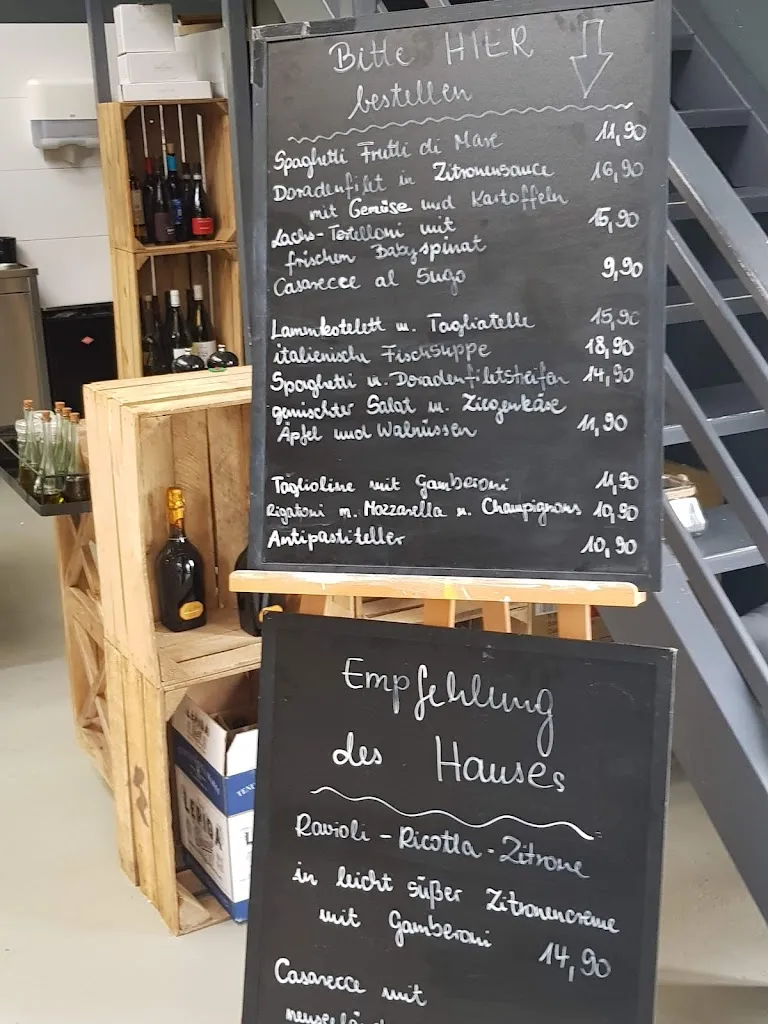 Bitte HIER
bestellen
Spaghetti Frutti di Mare 11,90
Doradenfilet in Zitronensauce 16,90
mit Gemüse und Kartoffeln
Lachs-Tortelloni mit 15,90
frischen Babyspinat
Casarecce al Sugo 9,90
Lammkotelett m. Tagliatelle 15,90
italienische Fischsuppe 18,90
Spaghetti m. Doradenfiletstreifen 14,90
gemischter Salat m. Ziegenkäse
Äpfel und Walnüssen 11,90
Taglioline mit Gamberoni 11,90
Rigatoni m. Mozzarella u. Champignons 10,90
Antipastiteller 10,90
Empfehlung
des Hauses
Ravioli - Ricotta - Zitrone
in leicht süßer Zitronencreme
mit Gamberoni 14,90
Casarecce mit
LEBIDA